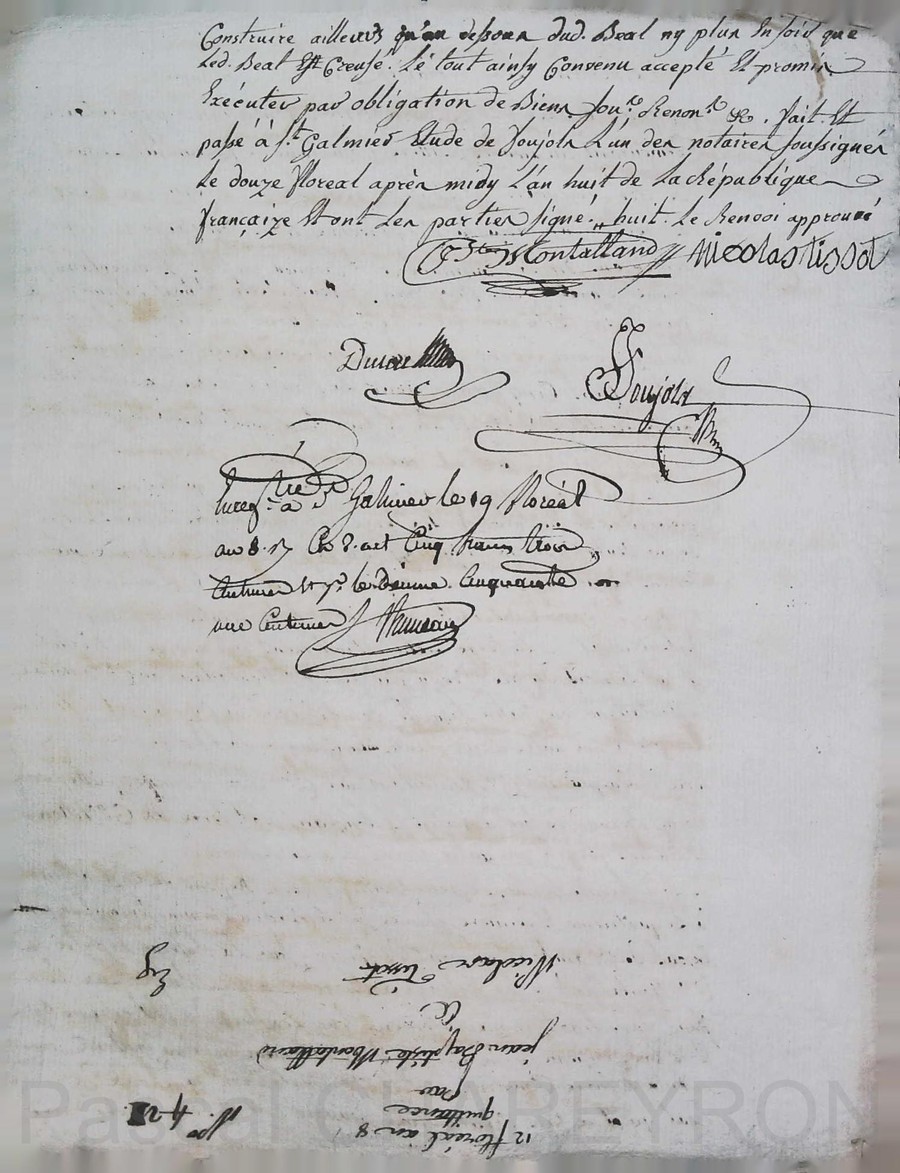 Construire ailleurs qu'au dessous dud. Beal ny plus En soid que
Led. Beal Est Creusé. Le tout ainsy Convenu accepté Et promis
Exécuter par obligation de Biens Sou.ns Renon.ns &c. fait Et
passé à S.t Galmier Etude de Soujols L'un des notaires soussignés
Le douze floreal après midy L'an huit de La République
françaize Et ont Les parties signé. huit. Le Renvoi approuvé
Montalland Nicolas tissot
Soujols
Enreg.tré à S.t Galmier le 19 floréal
an 8. cinq francs trois
Centimes Et p.r le Décime Cinquante
une Centimes
12 floréal an 8
quittance
par
jean Baptiste Montalland
à
Nicolas Tissot
Exp
N.o 42
Pascal CHAREYRON